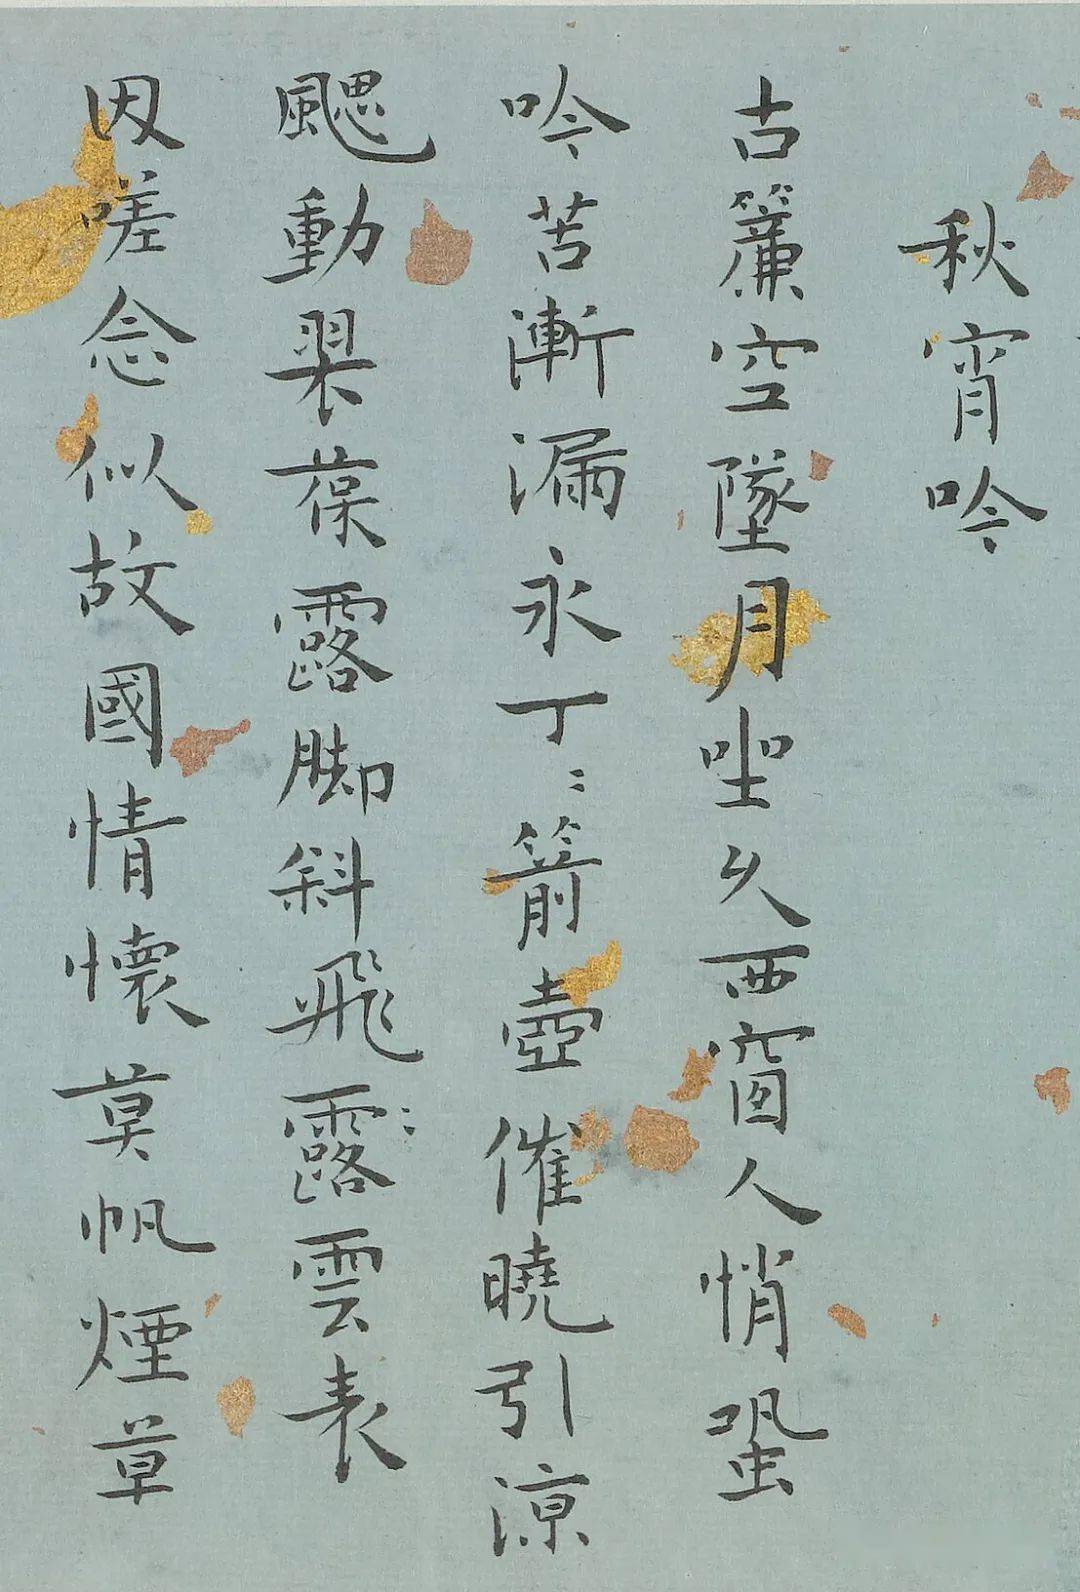 秋宵吟
古簾空墜月坐久西窗人悄蛩
吟苦漸漏永丁〻箭壺催曉引涼
颸動翠葆露脚斜飛露雲表
因嗟念似故國情懷莫帆煙草